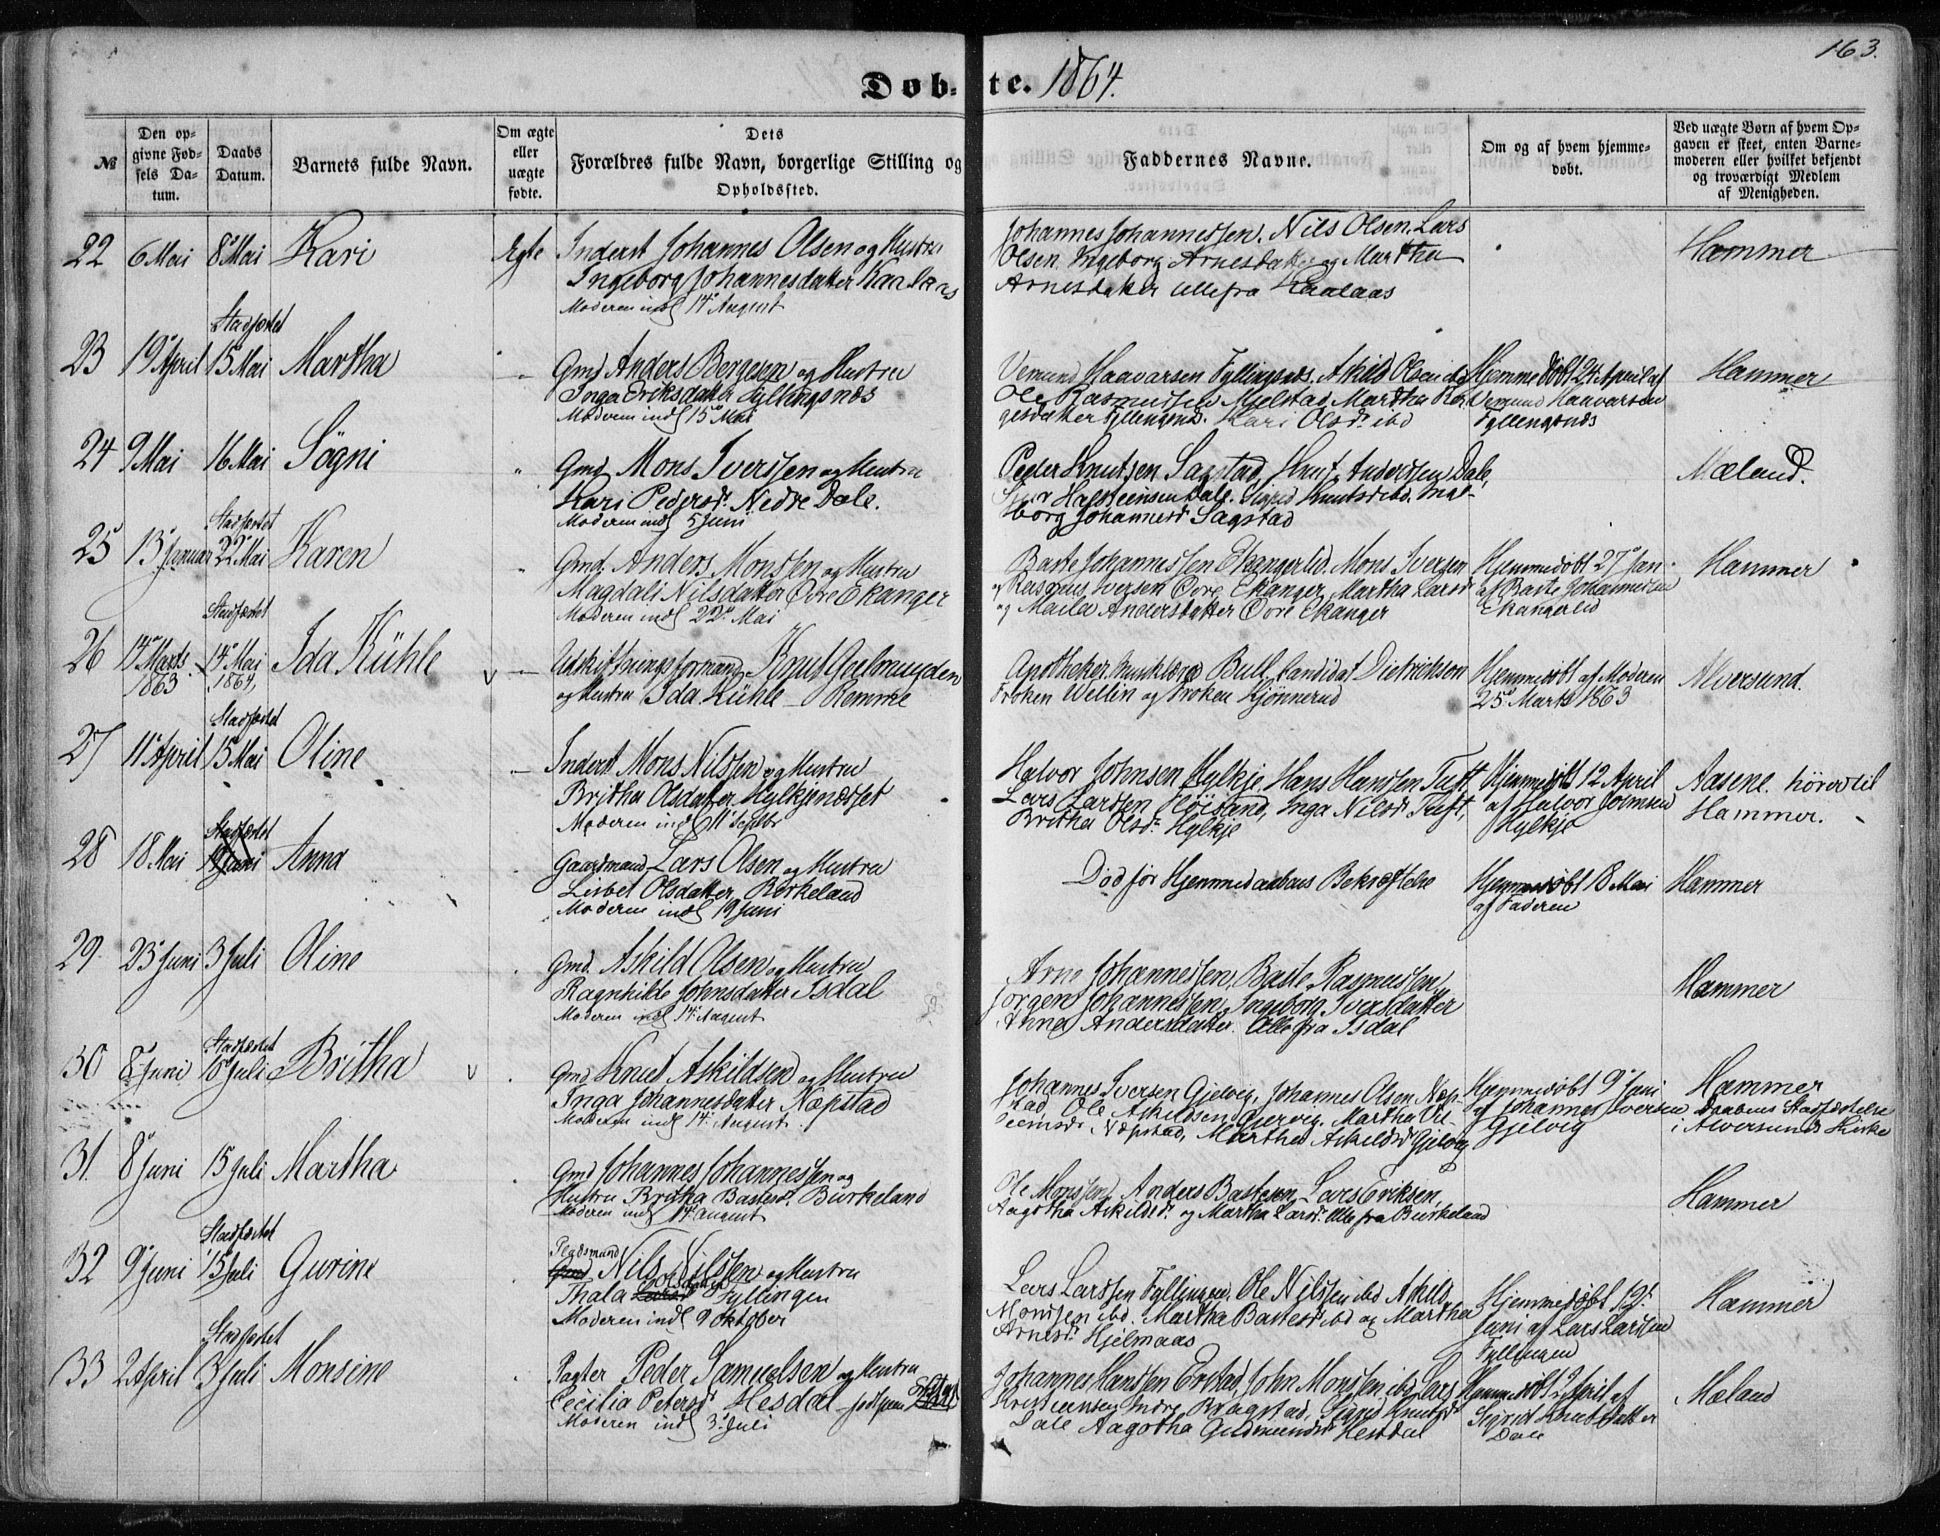 163.
Døb-te. 1864.
№
Den op-
givne Fød-
sels Da-
tum.
Daabs
Datum.
Barnets fulde Navn.
Om ægte
eller
uægte
fødte.
Dets
Forældres fulde Navn, borgerlige Stilling og
Opholdssted.
Faddernes Navne.
Om og af hvem hjemme-
døbt.
Ved uægte Børn af hvem Op-
gaven er skeet, enten Barne-
moderen eller hvilket bekjendt
og troværdigt Medlem
af Menigheden.
22 6 Mai 8 Mai Kari Ægte Inderst Johannes Olsen og Hustru
Ingeborg Johannesdatter
Moderen indl 14 August
Johannes Johannessen. Nils Olsen. Lars
Olsen. Ingeborg Arnesdatter og Martha
Arnesdatter alle fra Kaalaas
Hammer
23 19 April Stadfæstet 15 Mai Martha Gmd Anders Børgesen og Hustru
Inga Eriksdatter Fyllingsnæs
Moderen indl 15 Mai
Vemund Haavarsen Fyllingsnæs. Askild Olsen ibd
Ole Rasmussen Mjelstad, Martha Bør-
gesdatter Fyllingsnæs. Kari Olsdr ibd
Hjemmedøbt 24 April af
Vemund Haavarsen
Fyllingsnæs
Hammer
24 9 Mai 16 Mai Sögni Gmd Mons Iverssen og Hustru
Kari Pedersdr Nedre Dale.
Moderen indl 5 Juni
Peder Knutsen Sagstad, Knut Anderssen Dale,
Halsteensen Dale. Sigrid Knutsdr ibd. Inge-
borg Johannesdr Sagstad
Mæland.
25 13 Januar Stadfæstet 22 Mai Karen Gmd. Anders Monssen og Hustru
Magdali Nilsdatter Øvre Ekanger
Moderen indl 22 Mai
Baste Johannessen Ekangerlid. Mons Iversen
og Rasmus Iversen Øvre Ekanger, Martha Larsdr
og Marta Andersdatter Øvre Ekanger
Hjemmedøbt 27 Jan
af Baste Johannessen
Ekangerlid
Hammer
26 14 Marts 1863 Stadfæstet 14 Mai 1864, Ida Kühle Udskiftningsformand Knut Geelmuyden
og Hustru Ida Kühle Remme
Apotheker Bull, Candidat Dietrichson
Frøken Wettin og Frøken Hjønnerud
Hjemmedøbt af Moderen
25 Marts 1863
Alversund.
27 11 April Stadfæstet 15 Mai Oline Inderst Mons Nilssen og Hustru
Britha Olsdatter Hylkjenæsset
Moderen indl 11 Septbr
Halvor Johnsen Hylkje, Hans Hanssen Tuft,
Lars Larssen Høisand, Inga Nilsdr Tuft,
Britha Olsdr Hylkje
Hjemmedøbt 12 April
af Halvor Johnsen
Hylkje
Aasene hører til
Hammer.
28 18 Mai Stadfæstet 19 Juni Anna Gaardmand Lars Olsen og Hustru
Lisbet Olsdatter Birkeland
Moderen indl 19 Juni
Død før Hjemmedaabens Bekræftelse
Hjemmedøbt 18 Mai
af Faderen
Hammer
29 23 Juni 3 Juli Oline Gmd. Askild Olsen og Hustru
Ragnhilde Johnsdatter Isdal
Moderen indl 14 August
Arne Johannessen, Baste Rasmussen,
Jørgen Johannessen, Ingeborg Iversdatter
Anna Andersdatter. Alle fra Isdal
Hammer
30 8 Juni Stadfæstet 10 Juli Britha Gmd Knut Askildsen og Hustru
Inga Johannesdatter Næpstad
Moderen indl 14 August.
Johannes Iversen Gjelvig, Johannes Olsen Næp-
stad, Ole Askildsen Gjervig. Martha
Næpstad, Martha Askildsdr Gjelvig
Hjemmedøbt 9 Juni
af Johannes Iversen
Gjelvig
Hammer
Daabens Stadfæstelse
i Alversunds Kirke
31. 8 Juni 15 Juli Martha Gmd Johannes Johannessen og
Hustru Britha Bastesdr. Birkeland
Moderen indl 14 August
Ole Monssen, Anders Bastesen, Lars Eriksen,
Aagotha Askildsdr og Martha Larsdr. Alle fra Birkeland
Hammer
32 9 Juni Stadfæstet 15 Juli Gurine Pladsmand
Gmd Nils Nilssen og Hustru
Thala Fyllingen
Moderen indl 9 Oktober
Lars Larssen Fyllingen, Ole Nilssen ibd Askild
Monssen ibd. Martha Bastesdr ibd og Martha
Arnesdr Hjelmaas
Hjemmedøbt 12
Juni af Lars Larssen
Fyllingen
Hammer
33 2 April Stadfæstet 3 Juli Monsine Pagter Peder Samuelsen og Hustru
Cecilia Petersdr Hesdal
Moderen indl 3 Juli
Johannes Hanssen Evstad, John Monssen ibd, Lars
Indre Bragstad, Sigrid Knutsdr
Dale Aagotha Gudmundsdr Hesdal
Hjemmedøbt 9 April af
Sigrid Knutsdatter
Dale
Mæland